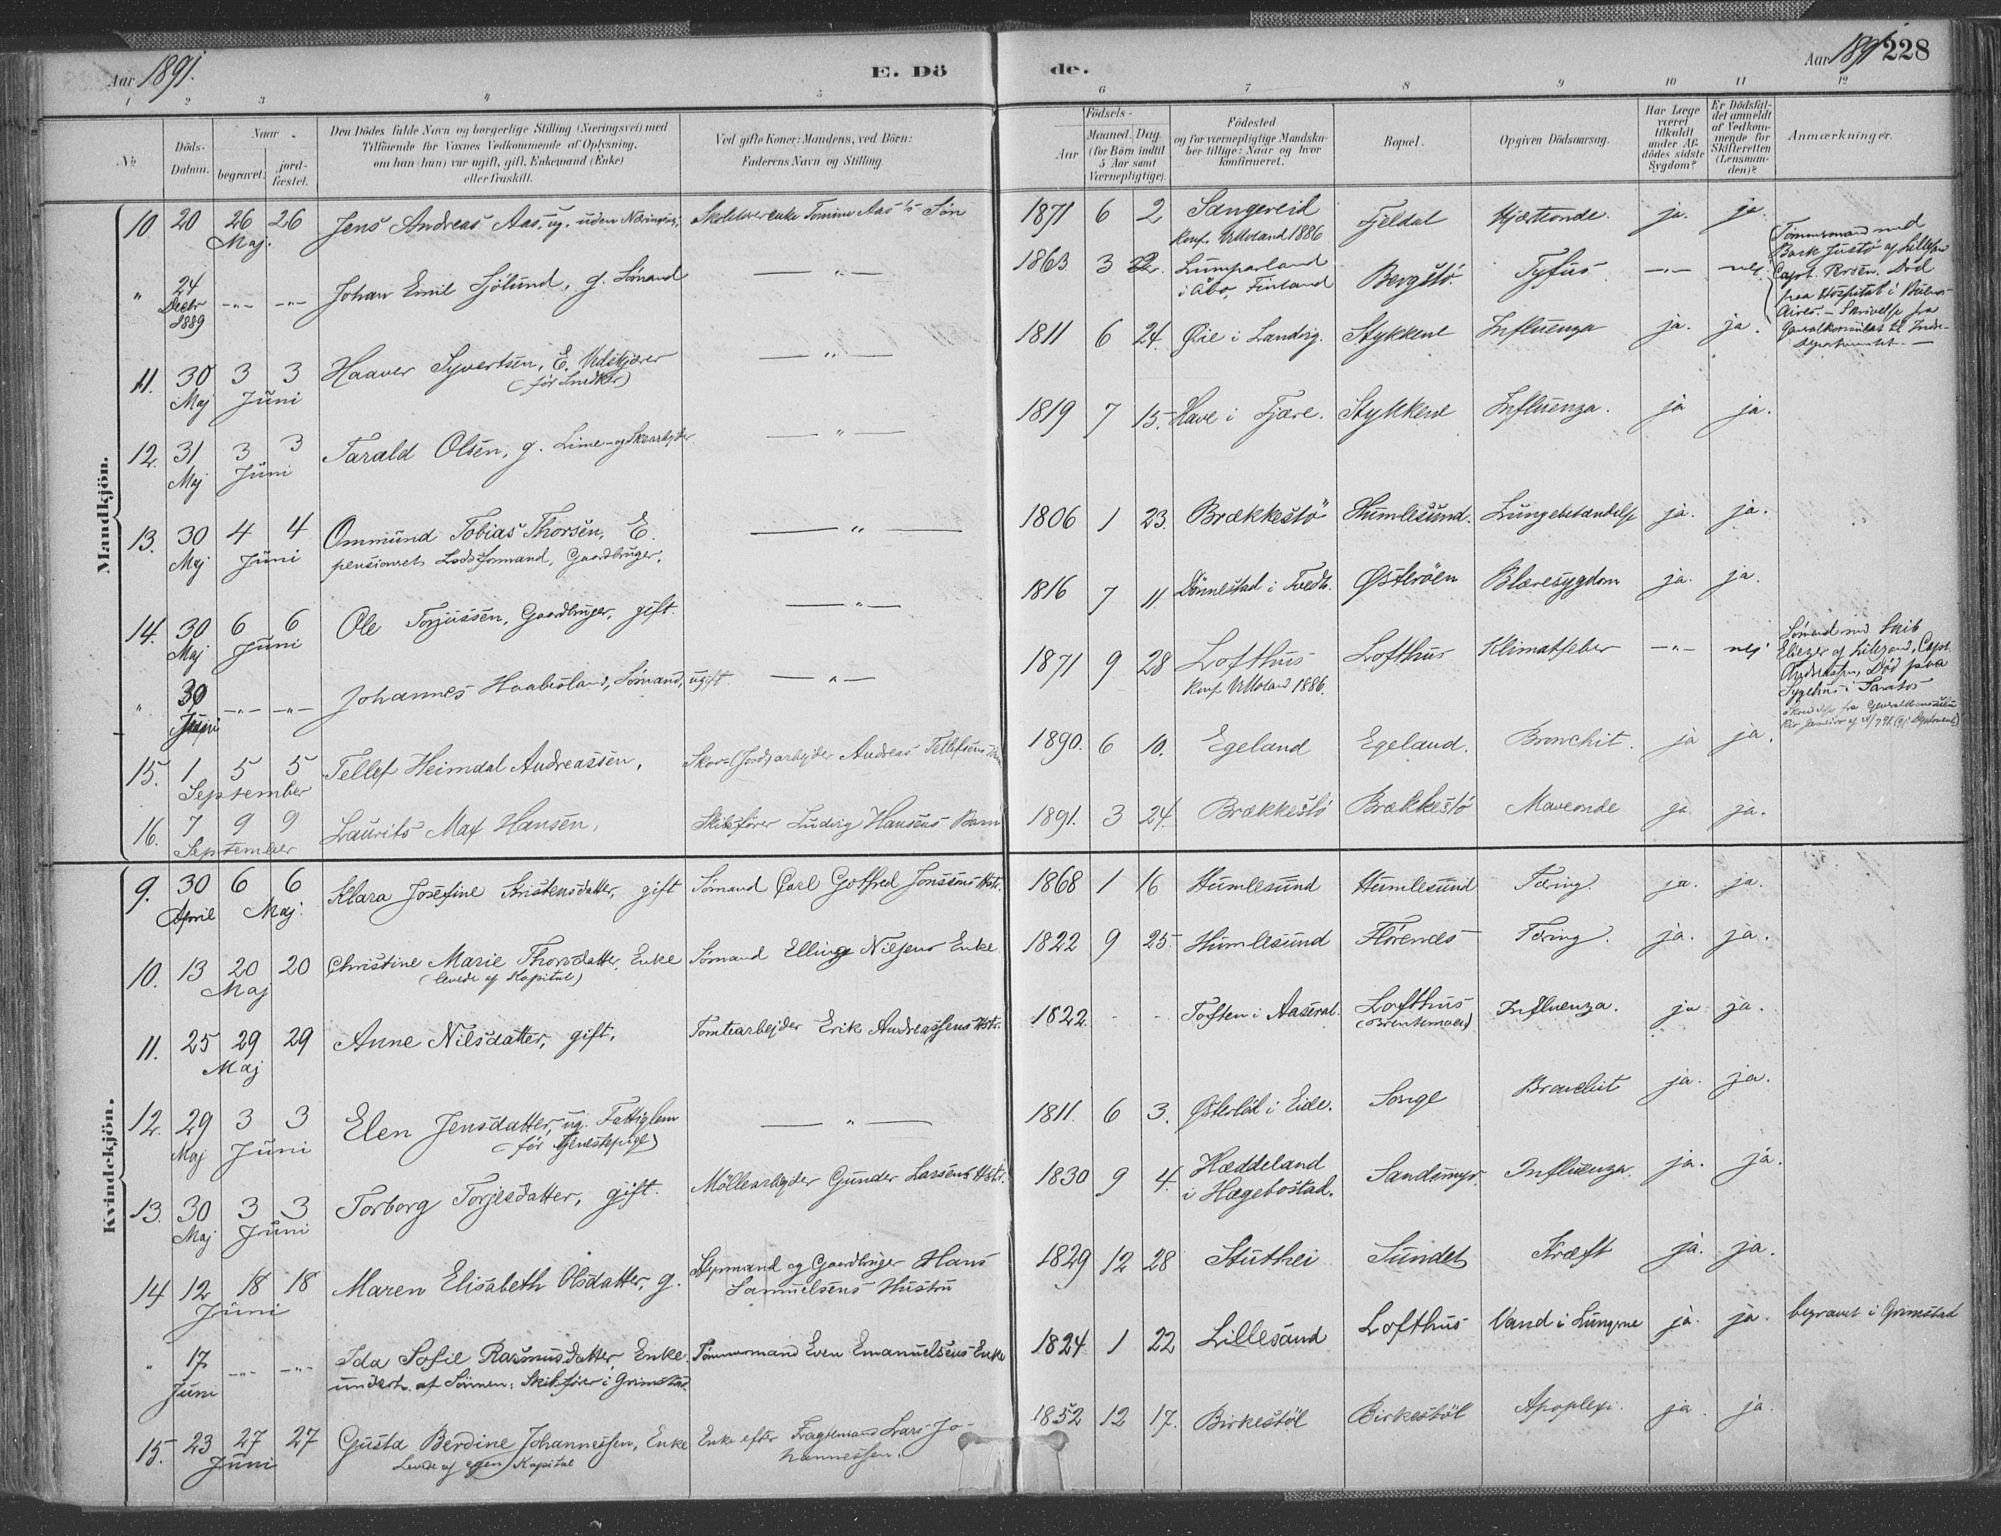 Aar 1891.
E. Dö
de.
Aar 1891 228
1 2 3 4 5 6 7 8 9 10 11 12
No
Döds-
Datum.
Naar
begravet.
jord-
fæstet.
Den Dödes fulde Navn og borgerlige Stilling (Næringsvei) med
Tilföiende for Voxnes Vedkommende af Oplysning,
om han (hun) var ugift, gift, Enkemand (Enke)
eller fraskilt.
Ved gifte Koner: Mandens, ved Börn:
Faderens Navn og Stilling.
Födsels-
Aar
Maaned.
Dag.
(for Börn indtil
5 Aar samt
Værnepligtige).
Födested
og for værnepligtige Mandska-
ber tillige: Naar og hvor
konfirmeret.
Bopæl.
Opgiven Dödsaarsag.
Har Læge
været
tilkaldt
under Af-
dödes sidste
Sygdom?
Er Dödsfal-
det anmeldt
af Vedkom-
mende for
Skifteretten
(Lensman-
den)?
Anmærkninger.
Mandkjön.
10. 20 26 26 Maj. Jens Andreas Aas, ug. uden Næringsv. Enke Tomine Aas's Sön 1871 6 2 Sangereid Konf. V.Moland 1886 Tjeldal Hjærteonde. ja. ja
" 24 Decbr 1889 -"- -"- Johan Emil Sjölund, g. Sömand — " — 1863 3 Lumparland i Åbo, Finland Bergstö. Tyfus -"- nej. Tömmermand med
Bark Justö af Lillesand
Capt. Död
paa Hospital i Buenos
Aires. - Skrivelse fra
Generalkonsulat til Indre-
departementet. —
11. 30 Maj 3 3 Juni Haaver Syvertsen, E. Vedskjærer (för Snedker) — " — 1811 6 24. Öie i Landvig. Stykkene Influenza ja. ja.
12. 31 Maj 3 3 Juni Tarald Olsen, g. Lime- og — " — 1819 7 15. Have i Fjære. Stykkene Influenza. ja ja.
13. 30 Maj 4 4 Juni Ommund Tobias Thorsen, E.
pensioneret Lodsformand, Gaardbruger. — " — 1806 1 23. Brækkestö Humlesund. Lungebetændelse ja. ja.
14. 30 Maj 6 6 Juni Ole Torjussen, Gaardbruger, gift. — " — 1816 7 11 Dönnestad i Tvedt. Østerøen Blæresygdom ja. ja.
" -"- -"- Johannes Haabesland, Sömand, ugift — " — 1871 9 28 Lofthus Konf. V.Moland 1886. Lofthus Klimatfeber -"- nej Sömand med Skib
Ebiezer af Lillesand, Capt.
Død paa
Sygehus i Santos
15. 1 5 5 September Tellef Heimdal Andreassen, Skov-(Jord)arbejder Andreas Tellefsens 1890. 6 10. Egeland Egeland. Bronchit. ja ja.
16. 7 9 9 September Laurits Max Hansen, Skibsförer Ludvig Hansens Barn 1891. 3 24. Brækkestö Brækkestö Maveonde ja. ja.
Kvindekjön.
9. 30 April 6 6 Maj. Klara Josefine Kristensdatter, gift Sömand Carl Gotfred Jonsens Hstr. 1868 1 16 Humlesund Humlesund Tæring. ja. ja.
10. 13 20 20 Maj Christine Marie Thorsdatter, Enke
(levede af Kapital) Sömand Elling Nilsens Enke 1822 9 25 Humlesund Flörenes Tæring. ja. ja.
11. 25 29 29 Maj Anne Nilsdatter, gift. Tomtearbejder Erik Andreassens Hstr. 1822 - - Toften i Aaseral. Lofthus (Brentemoen) Influenza. ja ja.
12. 29 Maj 3 3 Juni Elen Jensdatter, ug. Fattiglem
(för Tjenestepige) — " — 1811. 6 3. Østerlöt i Eide. Songe Bronchit ja. ja.
13. 30 Maj 3 3 Juni Torborg Torjesdatter, gift. Möllearbejder Gunder Larsens Hstr. 1830 9 4. Hæddeland i Hægebostad. Sandsmyr. Influenza. ja. ja.
14 12 18 18 Juni Maren Elisabeth Olsdatter, g. og Gaardbruger Hans
Samuelsens Hustru 1829 12 28 Stuthei Sundet Kræft ja. ja.
" 17 Juni -"- -"- Ida Sofie Rasmusdatter, Enke
underh. af Sönnen: Skibsförer i Grimstad. Tömmermand Even Emanuelsens Enke 1824 1 22 Lillesand Lofthus Vand i Lungerne ja. ja. begravet i Grimstad
15. 23 27 27 Juni Gusta Berdine Johannessen, Enke
Levede af egen Kapital Enke efter Fragtemand Lars Jo-
hannessen. 1852 12 17. Birkestöl Birkestöl Apoplexi. ja ja.